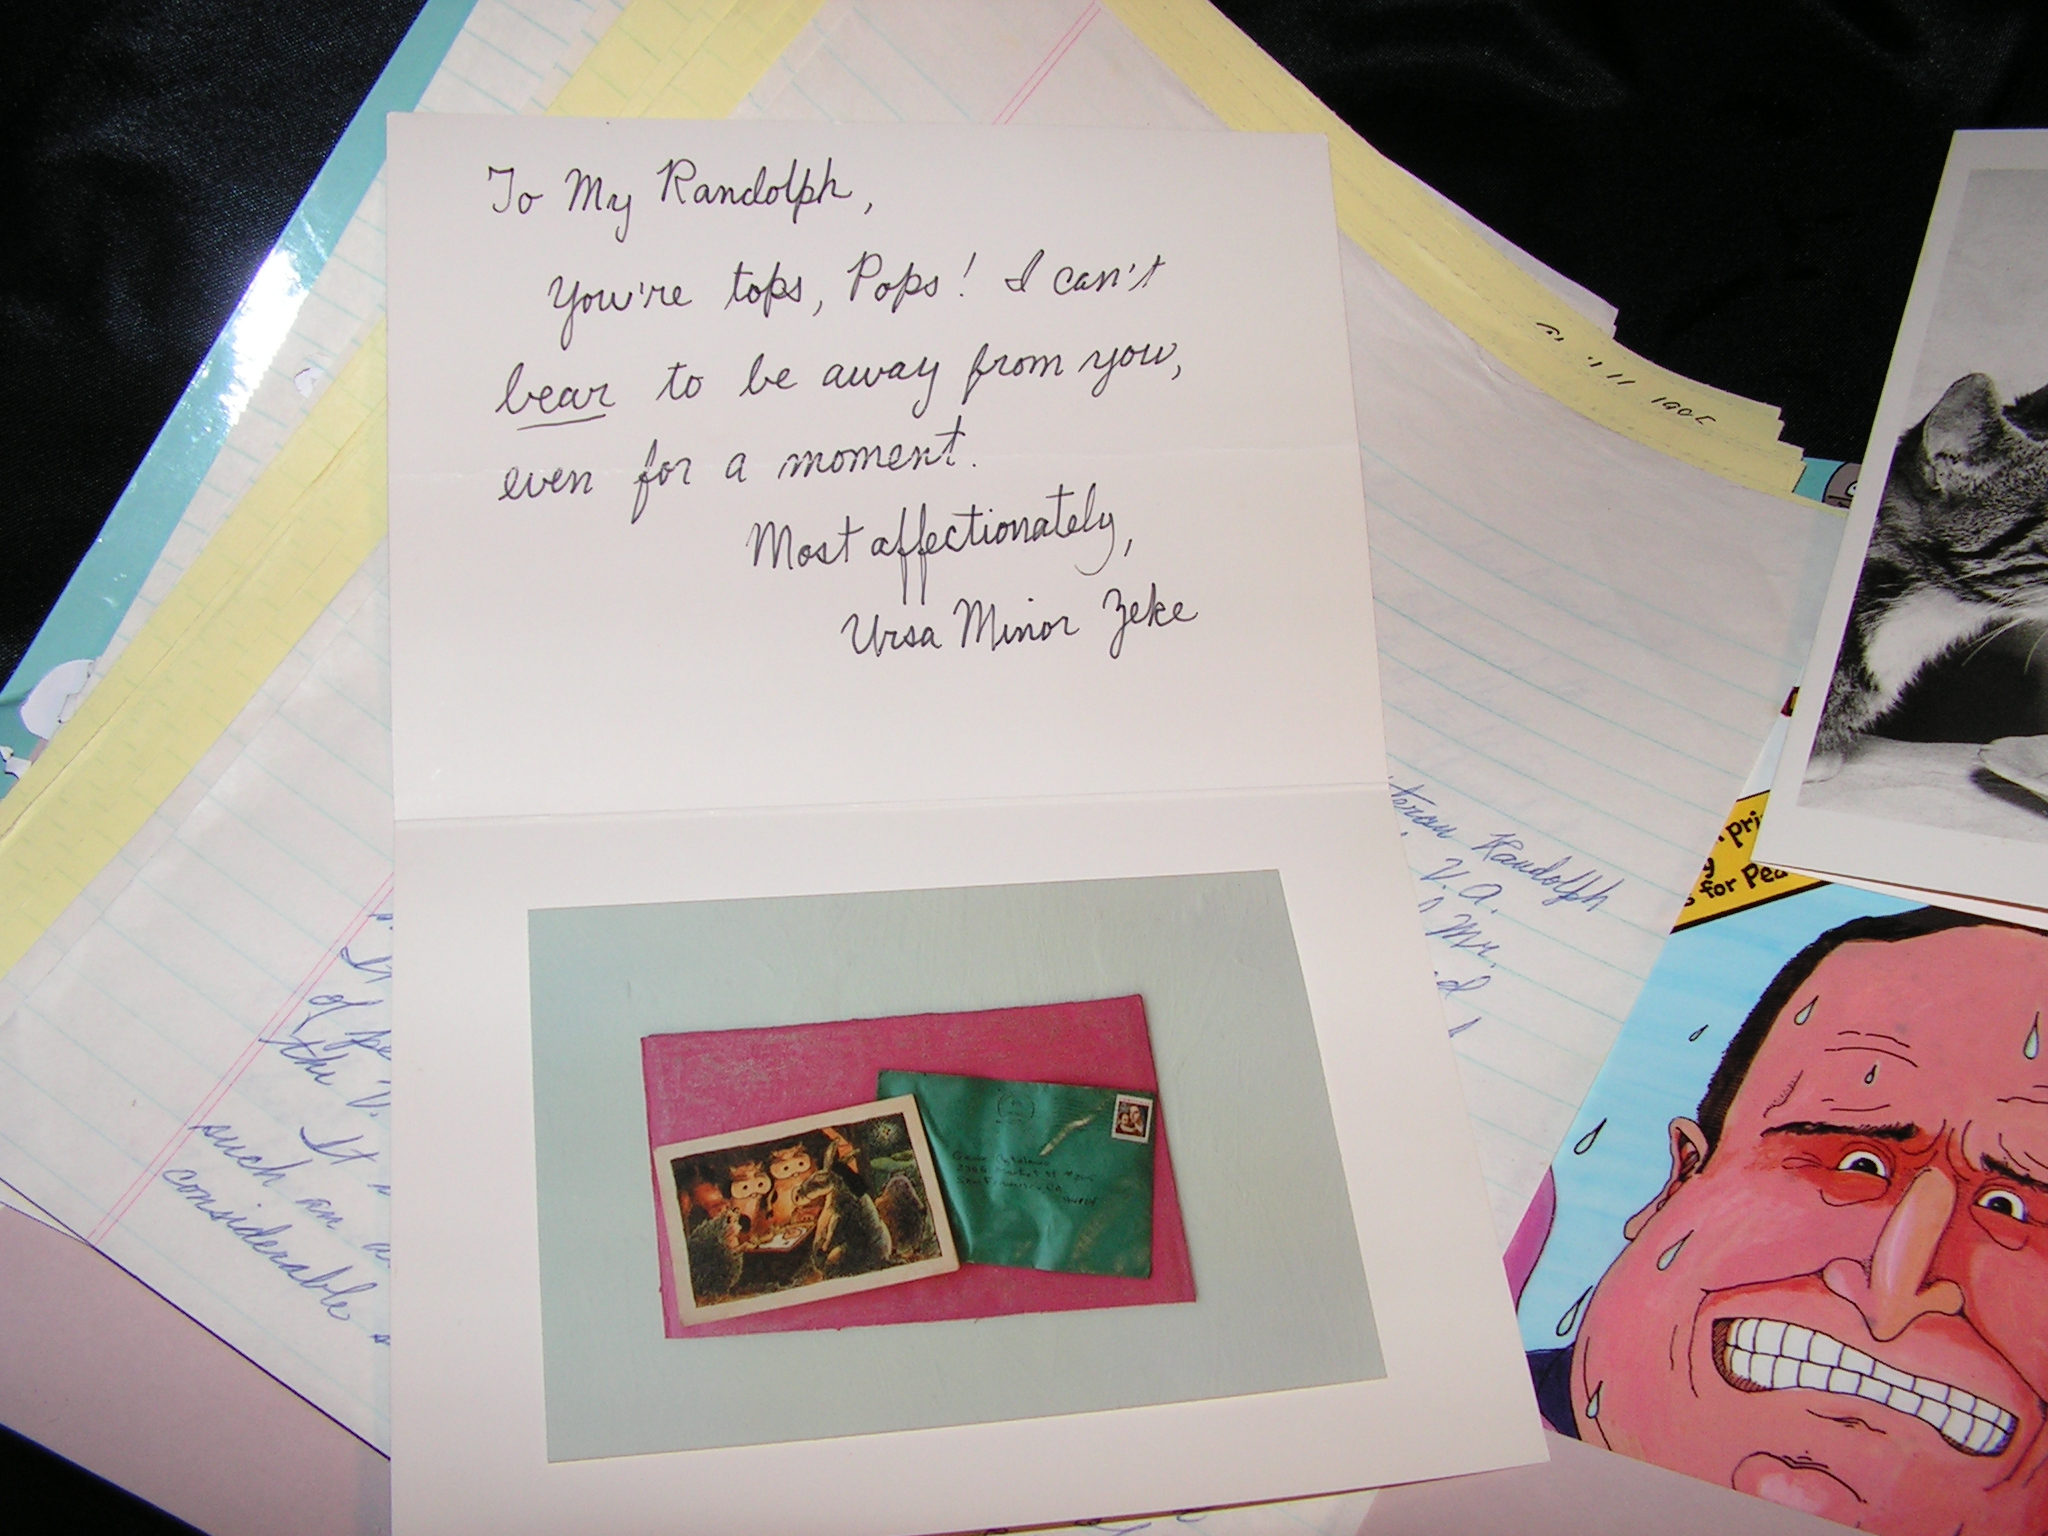 To My Randolph,
You're tops, Pops! I can't
bear to be away from you,
even for a moment.
Most affectionately,
Ursa Minor Zeke
Randolph
V.A.
Mr.
of
the V.
It
such an
considerable
for
San Francisco, Ca